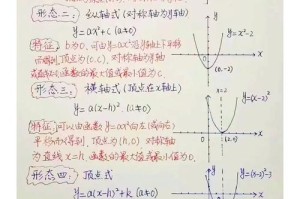 形态二：纵轴式（对称轴为y轴）
y=ax²+c (a≠0)
特征：b为0,可由y=ax²沿y轴上下平移
得到,顶点为(0,c),对称轴为y轴
函数的最大值或最小值为C.
y=x²-2
(0,-2)
形态三：横轴式（顶点在x轴上）
y=a(x-h)² (a≠0)
特征：可以由函数y=ax²向左(或向右)
平移而得到,顶点为(h,0),对称轴
为直线x=h,函数的最大值或最小值为0.
x=2
形态四：顶点式
y=a(x-h)²+k (a≠0)